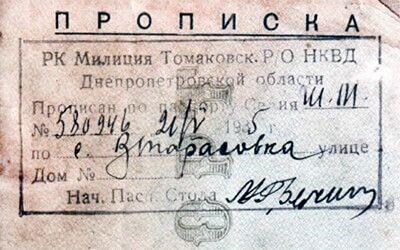 ПРОПИСКА
РК Милиция Томаковск. Р/О НКВД
Днепропетровской области
Прописан по паспорту Серия III.III
№ 580946 21/V 1945
по с. Втарасовка улице
Дом №
Нач. Пасп. Стола